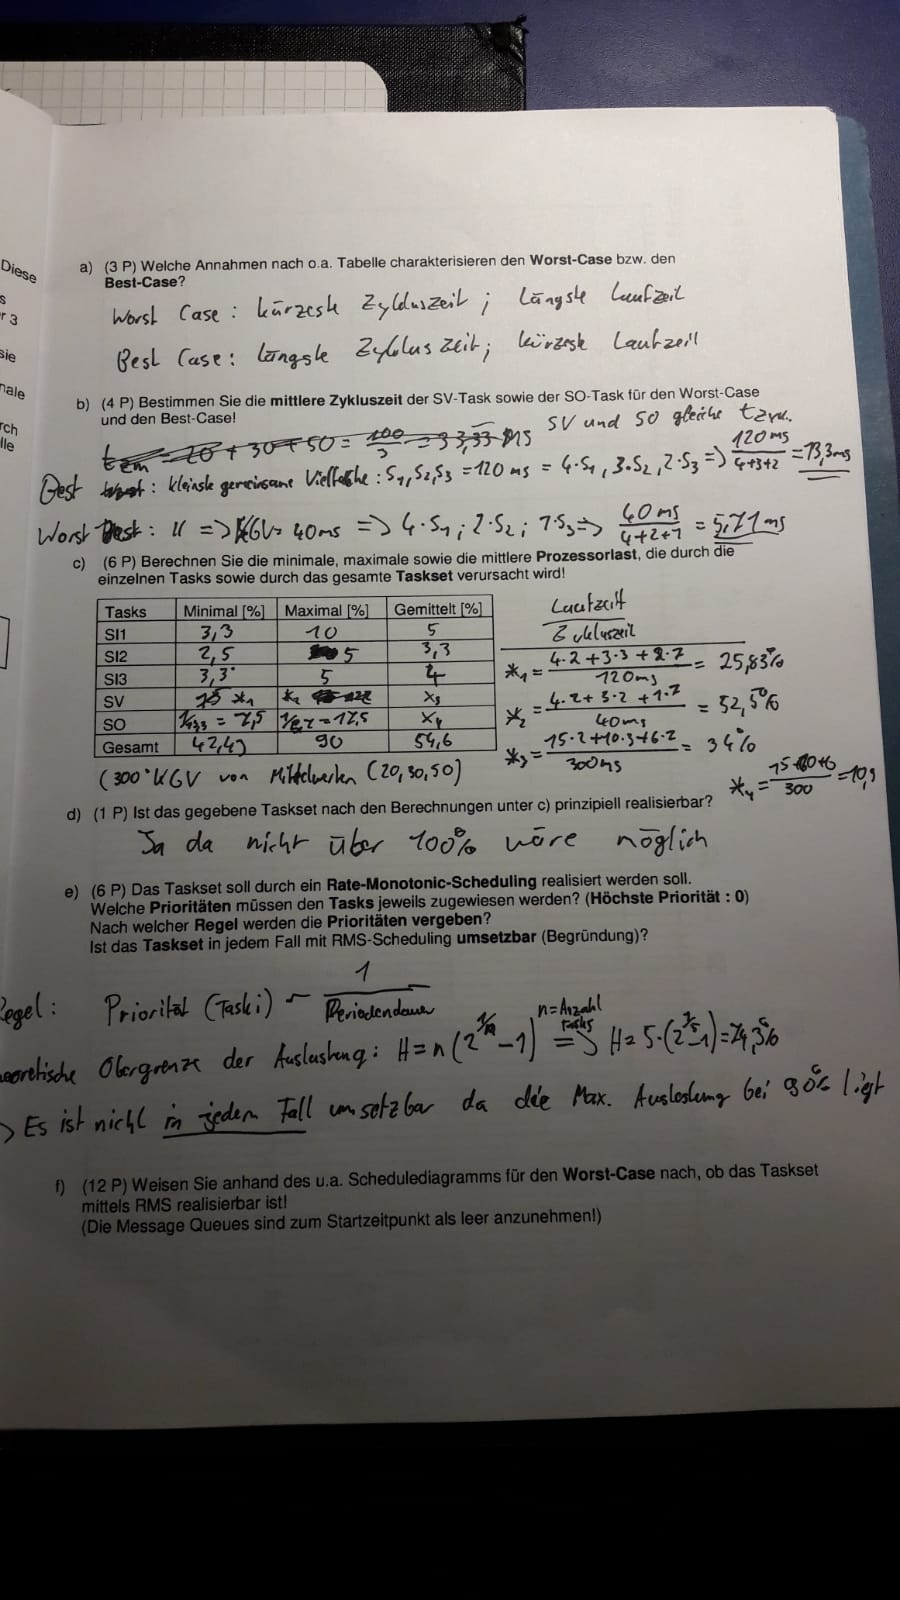 Diese
a) (3 P) Welche Annahmen nach o.a. Tabelle charakterisieren den Worst-Case bzw. den
Best-Case?
Worst Case: kürzeste Zykluszeit; längste Laufzeit
Best Case: längste Zykluszeit; kürzeste Laufzeit
b) (4 P) Bestimmen Sie die mittlere Zykluszeit der SV-Task sowie der SO-Task für den Worst-Case
und den Best-Case!
SV und SO gleiche tzyk.
20 + 30 + 50 = 100/3 = 33,33 ms
Best : kleinste gemeinsame Vielfache: S1, S2, S3 = 120 ms = 4·S1, 3·S2, 2·S3 => 120 ms / 4+3+2 = 13,3ms
Worst : " => KGV = 40ms => 4·S1; 2·S2; 1·S3 => 40ms / 4+2+1 = 5,71ms
c) (6 P) Berechnen Sie die minimale, maximale sowie die mittlere Prozessorlast, die durch die
einzelnen Tasks sowie durch das gesamte Taskset verursacht wird!
Tasks Minimal [%] Maximal [%] Gemittelt [%]
SI1 3,3 10 5
SI2 2,5 5 3,3
SI3 3,3 5 4
SV *1 *2 x3
SO = 7,5 = 17,5 x4
Gesamt 42,43 90 54,6
Laufzeit
Zykluszeit
*1 = 4·2+3·3+2·7 / 120ms = 25,83%
*2 = 4·2+3·2+1·7 / 40ms = 52,5%
*3 = 15·2+10·3+6·2 / 300ms = 34%
*4 = / 300
(300 KGV von Mittelwerten (20,30,50)
d) (1 P) Ist das gegebene Taskset nach den Berechnungen unter c) prinzipiell realisierbar?
Ja da nicht über 100% wäre möglich
e) (6 P) Das Taskset soll durch ein Rate-Monotonic-Scheduling realisiert werden soll.
Welche Prioritäten müssen den Tasks jeweils zugewiesen werden? (Höchste Priorität : 0)
Nach welcher Regel werden die Prioritäten vergeben?
Ist das Taskset in jedem Fall mit RMS-Scheduling umsetzbar (Begründung)?
Regel: Priorität (Task i) ~ 1 / Periodendauer
Obergrenze der Auslastung: H = n(2^1/n - 1) n=Anzahl tasks => H = 5·(2^1/5 -1) = 74,3%
> Es ist nicht in jedem Fall umsetzbar da die Max. Auslastung bei 90% liegt
f) (12 P) Weisen Sie anhand des u.a. Schedulediagramms für den Worst-Case nach, ob das Taskset
mittels RMS realisierbar ist!
(Die Message Queues sind zum Startzeitpunkt als leer anzunehmen!)